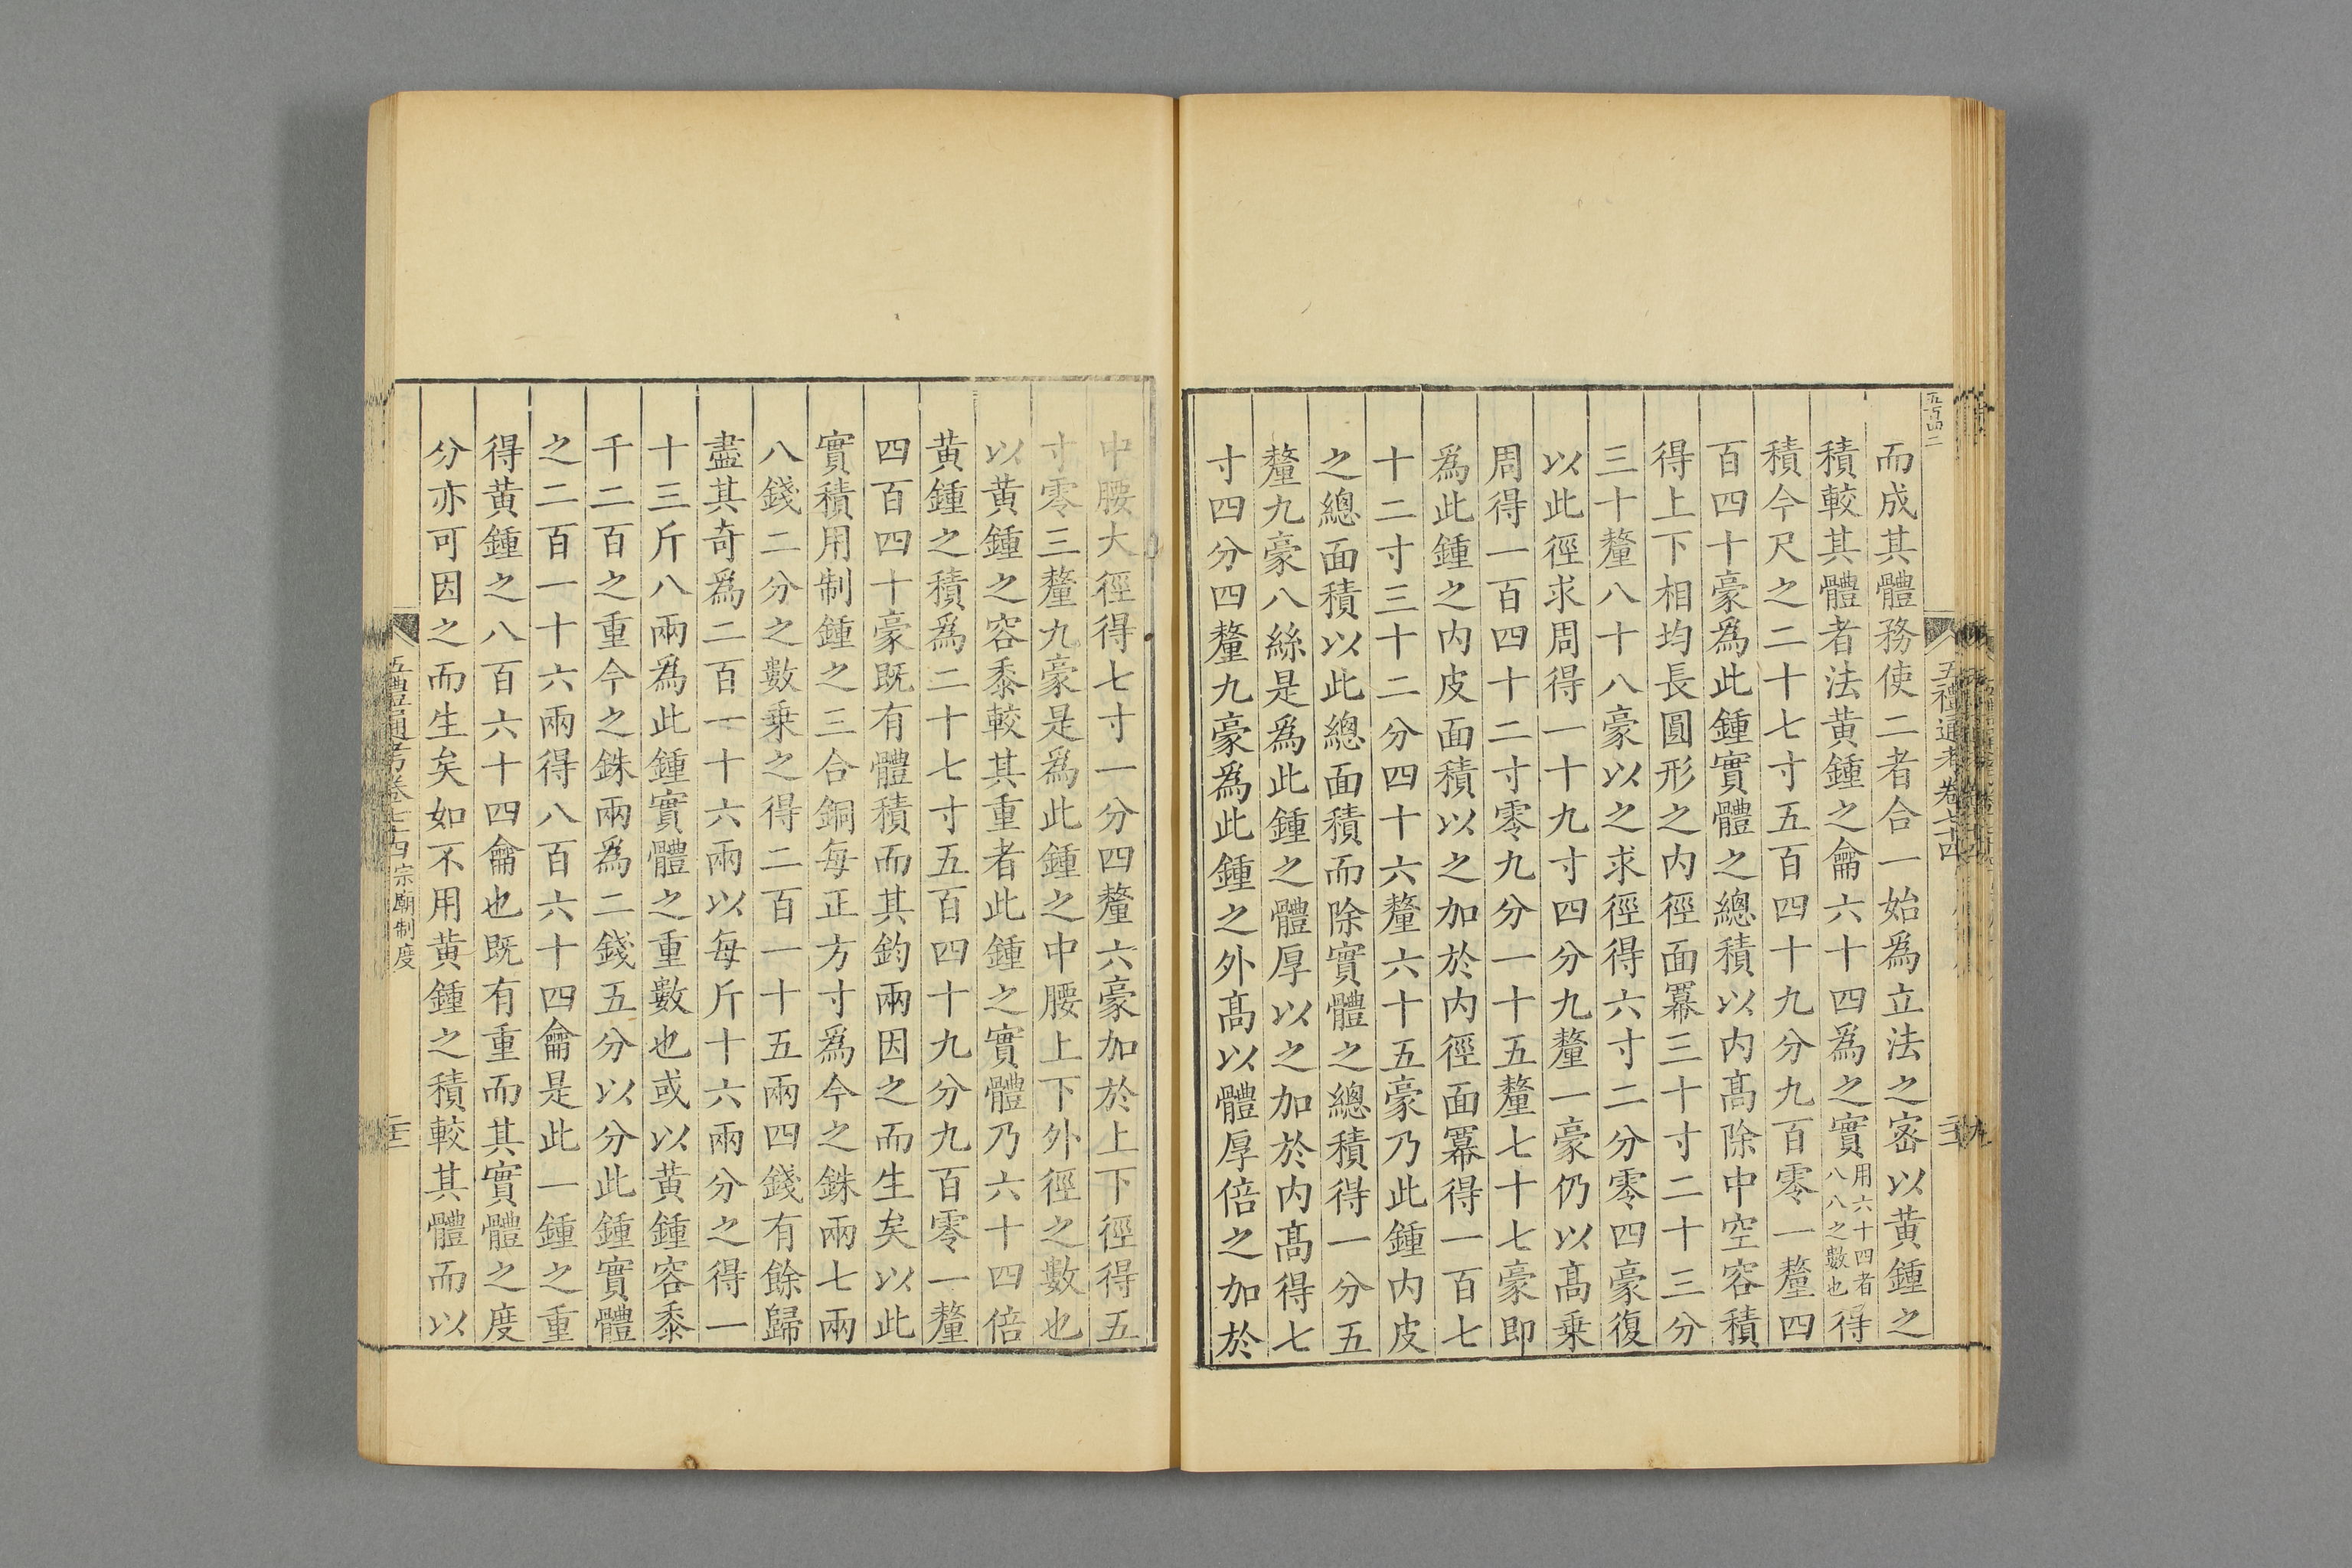 五百四二
五禮通考卷七十四
而成其體務使二者合一始爲立法之密以黄鍾之
積較其體者法黄鍾之龠六十四爲之實用六十四者八八之數也得
積今尺之二十七寸五百四十九分九百零一釐四
百四十豪爲此鍾實體之總積以内髙除中空容積
得上下相均長圓形之内徑面冪三十寸二十三分
三十釐八十八豪以之求徑得六寸二分零四豪復
以此徑求周得一十九寸四分九釐一豪仍以髙乗
周得一百四十二寸零九分一十五釐七十七豪即
爲此鍾之内皮面積以之加於内徑面冪得一百七
十二寸三十二分四十六釐六十五豪乃此鍾内皮
之總面積以此總面積而除實體之總積得一分五
釐九豪八絲是爲此鍾之體厚以之加於内髙得七
寸四分四釐九豪爲此鍾之外髙以體厚倍之加於
中腰大徑得七寸一分四釐六豪加於上下徑得五
寸零三釐九豪是爲此鍾之中腰上下外徑之數也
以黄鍾之容黍較其重者此鍾之實體乃六十四倍
黄鍾之積爲二十七寸五百四十九分九百零一釐
四百四十豪既有體積而其鈞兩因之而生矣以此
實積用制鍾之三合銅每正方寸爲今之銖兩七兩
八錢二分之數乗之得二百一十五兩四錢有餘歸
盡其奇爲二百一十六兩以每斤十六兩分之得一
十三斤八兩爲此鍾實體之重數也或以黄鍾容黍
千二百之重今之銖兩為二錢五分以分此鍾實體
之二百一十六兩得八百六十四龠是此一鍾之重
得黄鍾之八百六十四龠也既有重而其實體之度
分亦可因之而生矣如不用黄鍾之積較其體而以
五禮通考卷七十四 宗廟制度